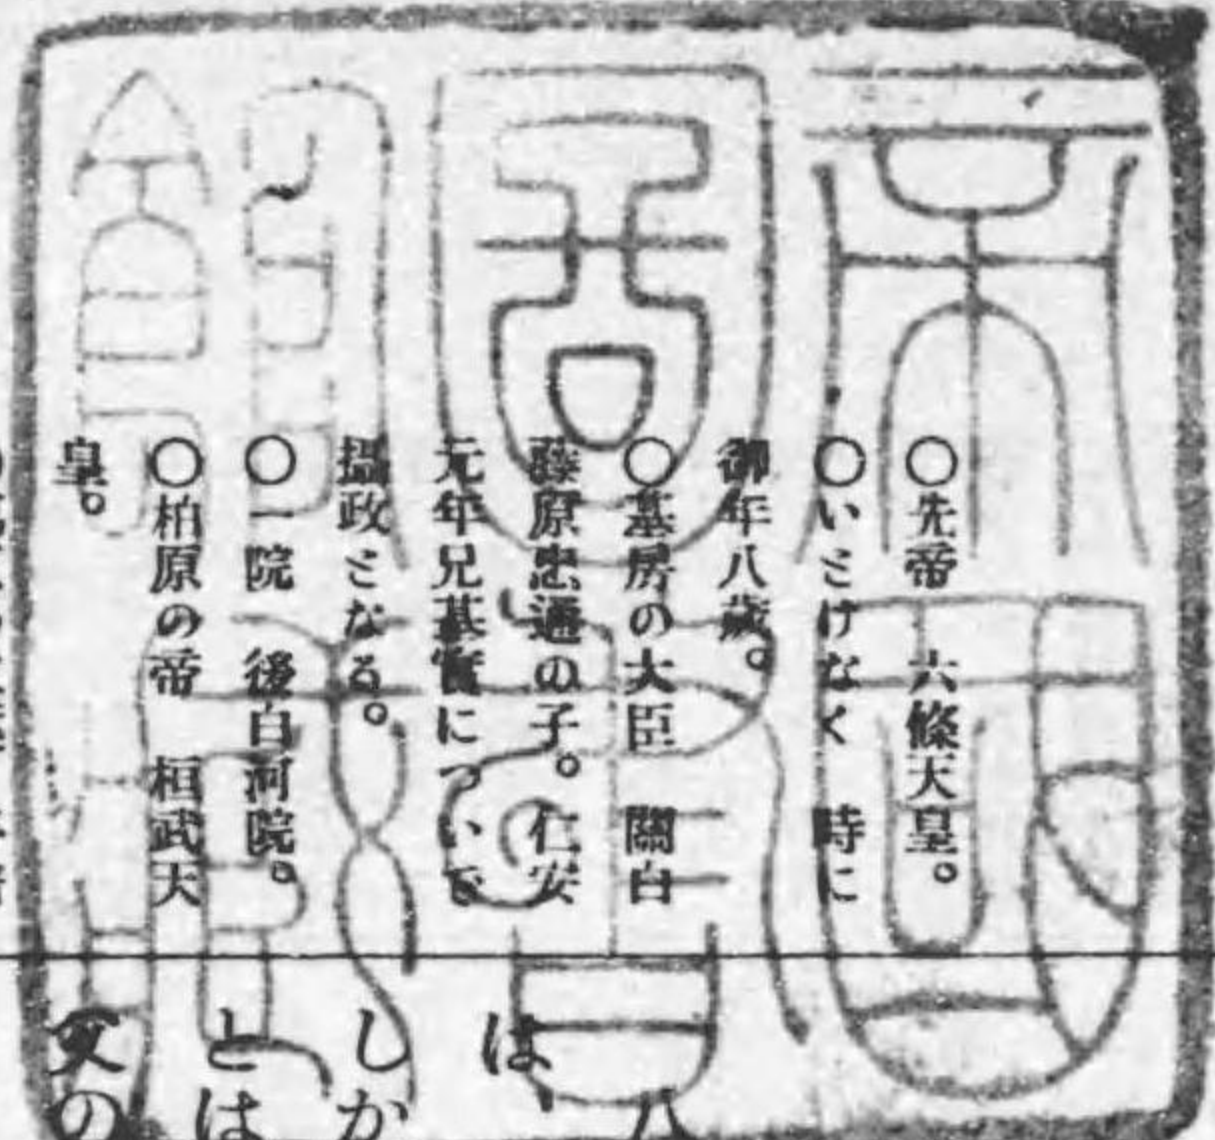 〇先帝　六條天皇。
〇いとけなく　時に
御年八歲。
〇基房の大臣　關白
藤原忠通の子。仁安
元年兄基實についで
攝政となる。
〇一院　後白河院。
〇柏原の帝　桓武天
皇。
八
は、
しか
とは
又の